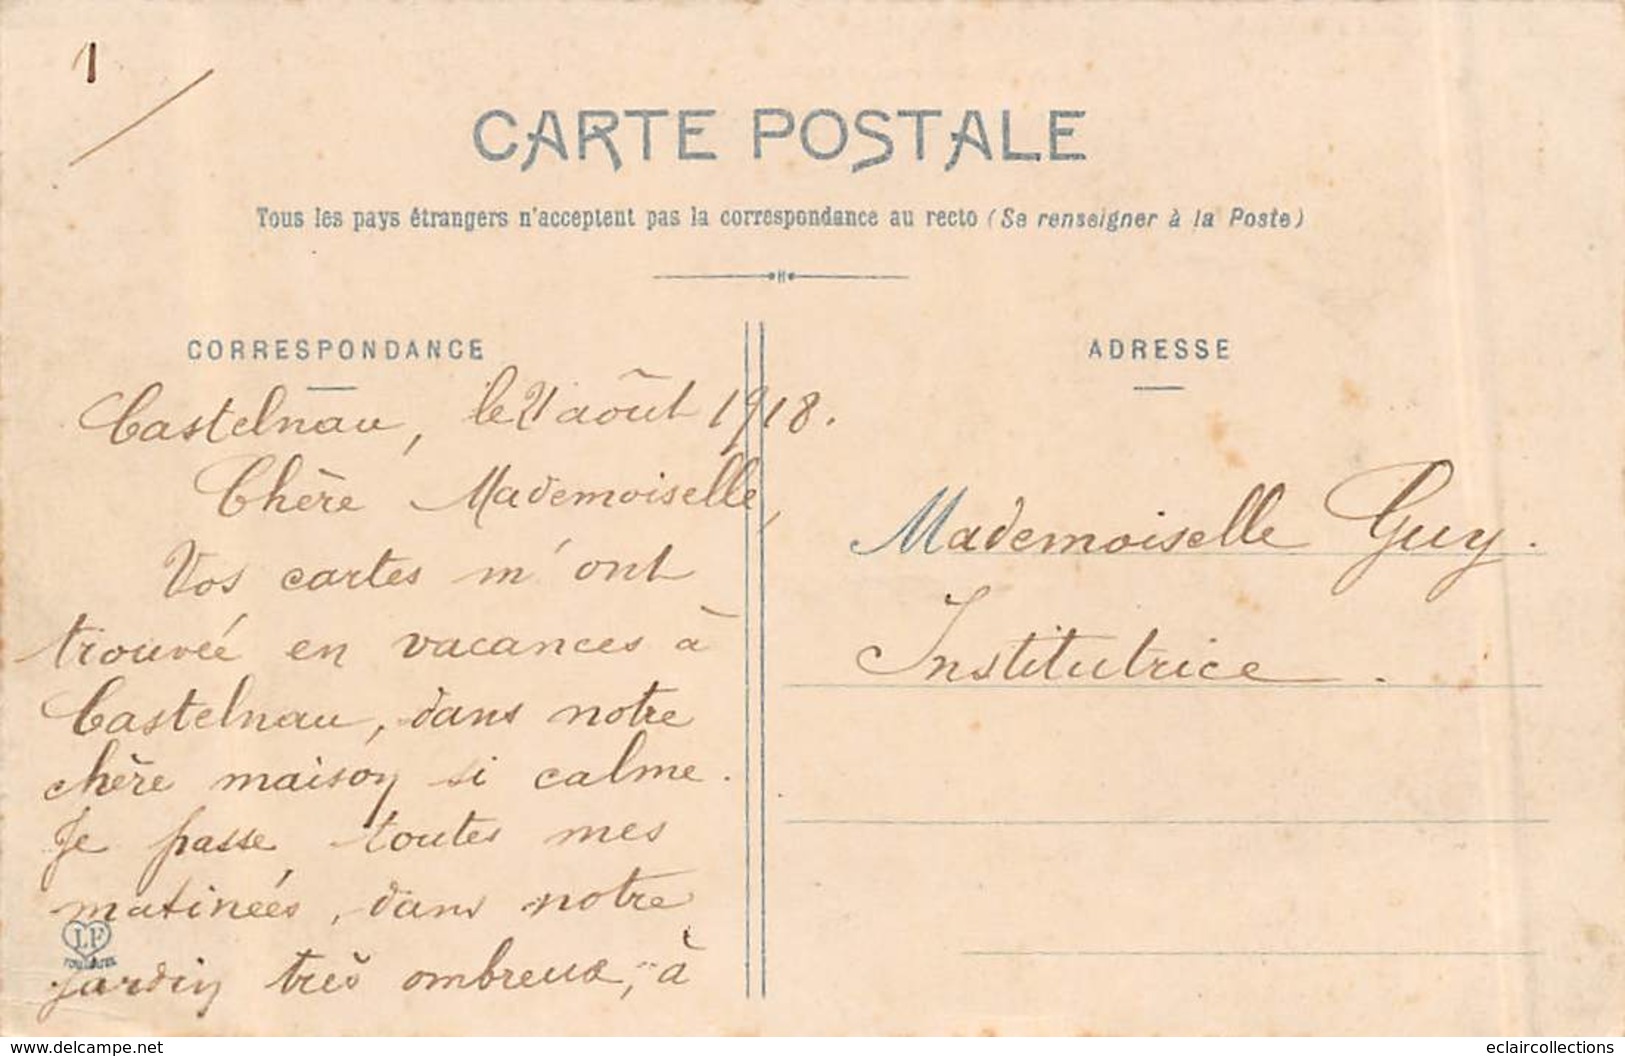 1
CARTE POSTALE
Tous les pays étrangers n'acceptent pas la correspondance au recto (Se renseigner à la Poste)
CORRESPONDANCE
Castelnau, le 21 août 1918.
Chère Mademoiselle,
Vos cartes m'ont
trouvée en vacances à
Castelnau, dans notre
chère maison si calme.
Je passe toutes mes
matinées, dans notre
jardin très ombreux, à
LF
TOULOUSE
ADRESSE
Mademoiselle Guy.
Institutrice.
www.delcampe.net
eclaircollections